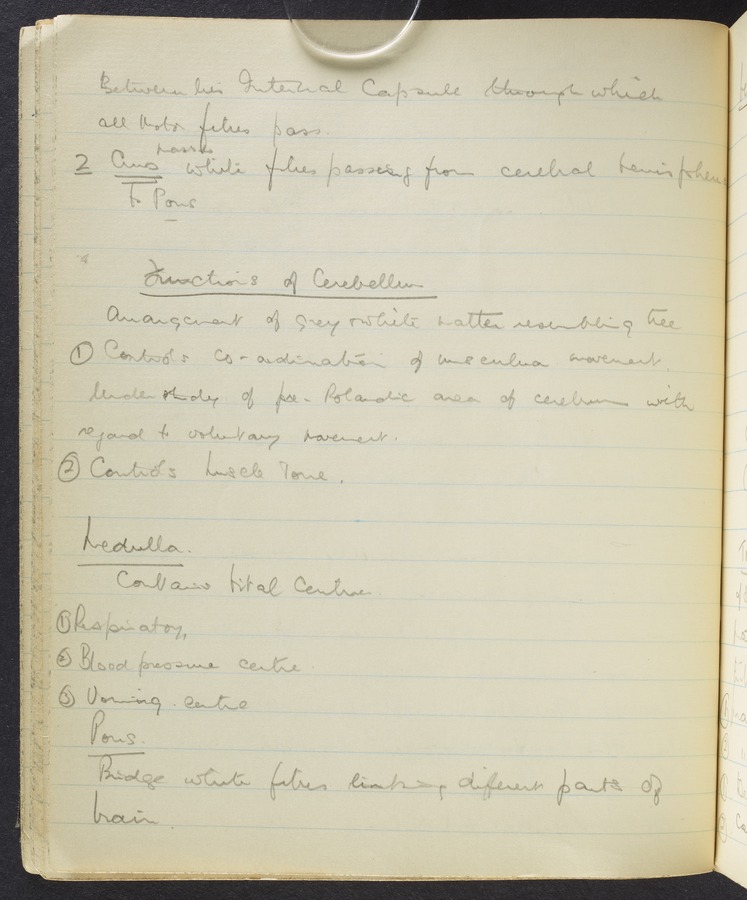 Between lies Internal Capsule through which
all motor fibres pass.
masses
2 Crus white fibres passing from cerebral hemisphere
to Pons
Functions of Cerebellum
Arrangement of grey & white matter resembling tree
① Controls co-ordination of muscular movement.
Understudy of pre-Rolandic area of cerebrum with
regard to voluntary movement.
② Controls Muscle Tone.
Medulla.
Contains Vital Centres.
① Respiratory,
② Blood pressure centre.
③ Vomiting centre
Pons.
Bridge white fibres linking different parts of
brain